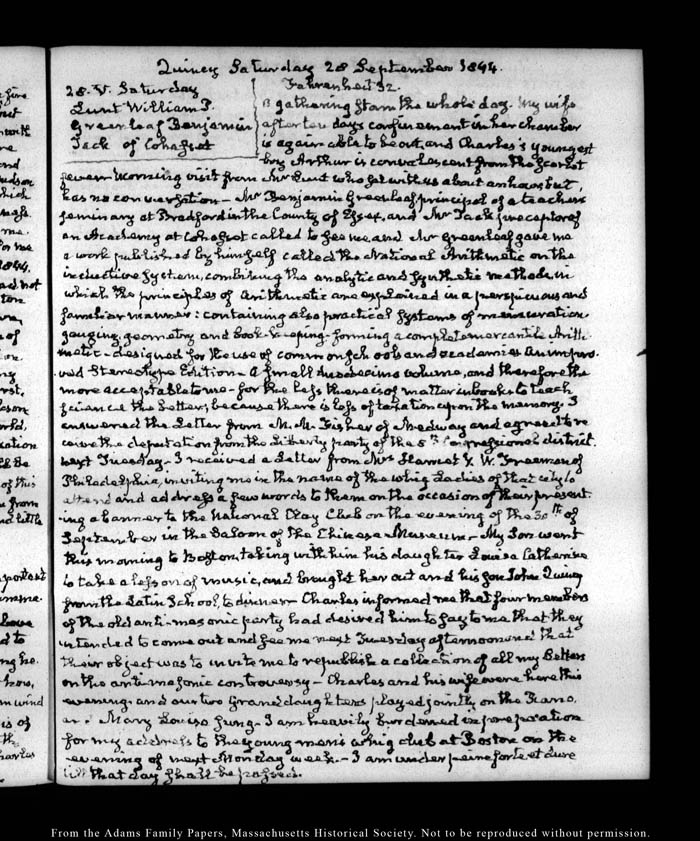 Quincy Saturday 28 September 1844.
28. V. Saturday
Lunt William P.
Greenleaf Benjamin
Jack of Cohasset
Fahrenheit 52.
A gathering storm the whole day. My wife
after ten days confinement in her chamber
is again able to be out, and Charles's youngest
boy Arthur is convalescent from the scarlet
fever. Morning visit from Mr Lunt who sat with us about an hour, but,
has no conversation — Mr Benjamin Greenleaf principal of a teachers
seminary at Bradford in the County of Essex, and Mr Jack preceptor of
an Academy at Cohasset called to see me, and Mr Greenleaf gave me
a work published by himself called the National Arithmetic on the
inductive system, combining the analytic and synthetic methods, in
which the principles of arithmetic are explained in a perspicuous and
familiar manner: containing also practical systems of mensuration
gauging, geometry and book-keeping, forming a complete mercantile Arith-
metic — designed for the use of common schools and academies. An impro-
ved Stereotype Edition — A small duodecimo volume, and therefore the
more acceptable to me — for the less there is of matter in books to teach
science the better, because there is less of taxation upon the memory. I
answered the Letter from M. M. Fisher of Medway and agreed to re
ceive the deputation from the Liberty party of the 8th Congressional district.
next Tuesday — I received a Letter from Mrs Y. W. Freeman of
Philadelphia, inviting me in the name of the Whig Ladies of that city to
attend and address a few words to them on the occasion of their present-
ing a banner to the National Clay Club on the evening of the 30th of
September in the Saloon of the Chinese Museum — My Son went
this morning to Boston, taking with him his daughter Louisa Catherine
to take a lesson of music, and brought her out and his son John Quincy
from the Latin School, to dinner. Charles informed me that four members
of the old anti-masonic party had desired him to say to me that they
intended to come out and see me next Tuesday afternoon and that
their object was to invite me to republish a collection of all my Letters
on the anti-masonic controversy — Charles and his wife were here this
evening, and our two Granddaughters played jointly on the Piano,
and Mary Louisa sung — I am heavily burdened in preparation
for my address to the young men's whig club at Boston on the
evening of next Monday week. — I am under peine forte et dure
till that day shall be passed.
From the Adams Family Papers, Massachusetts Historical Society. Not to be reproduced without permission.